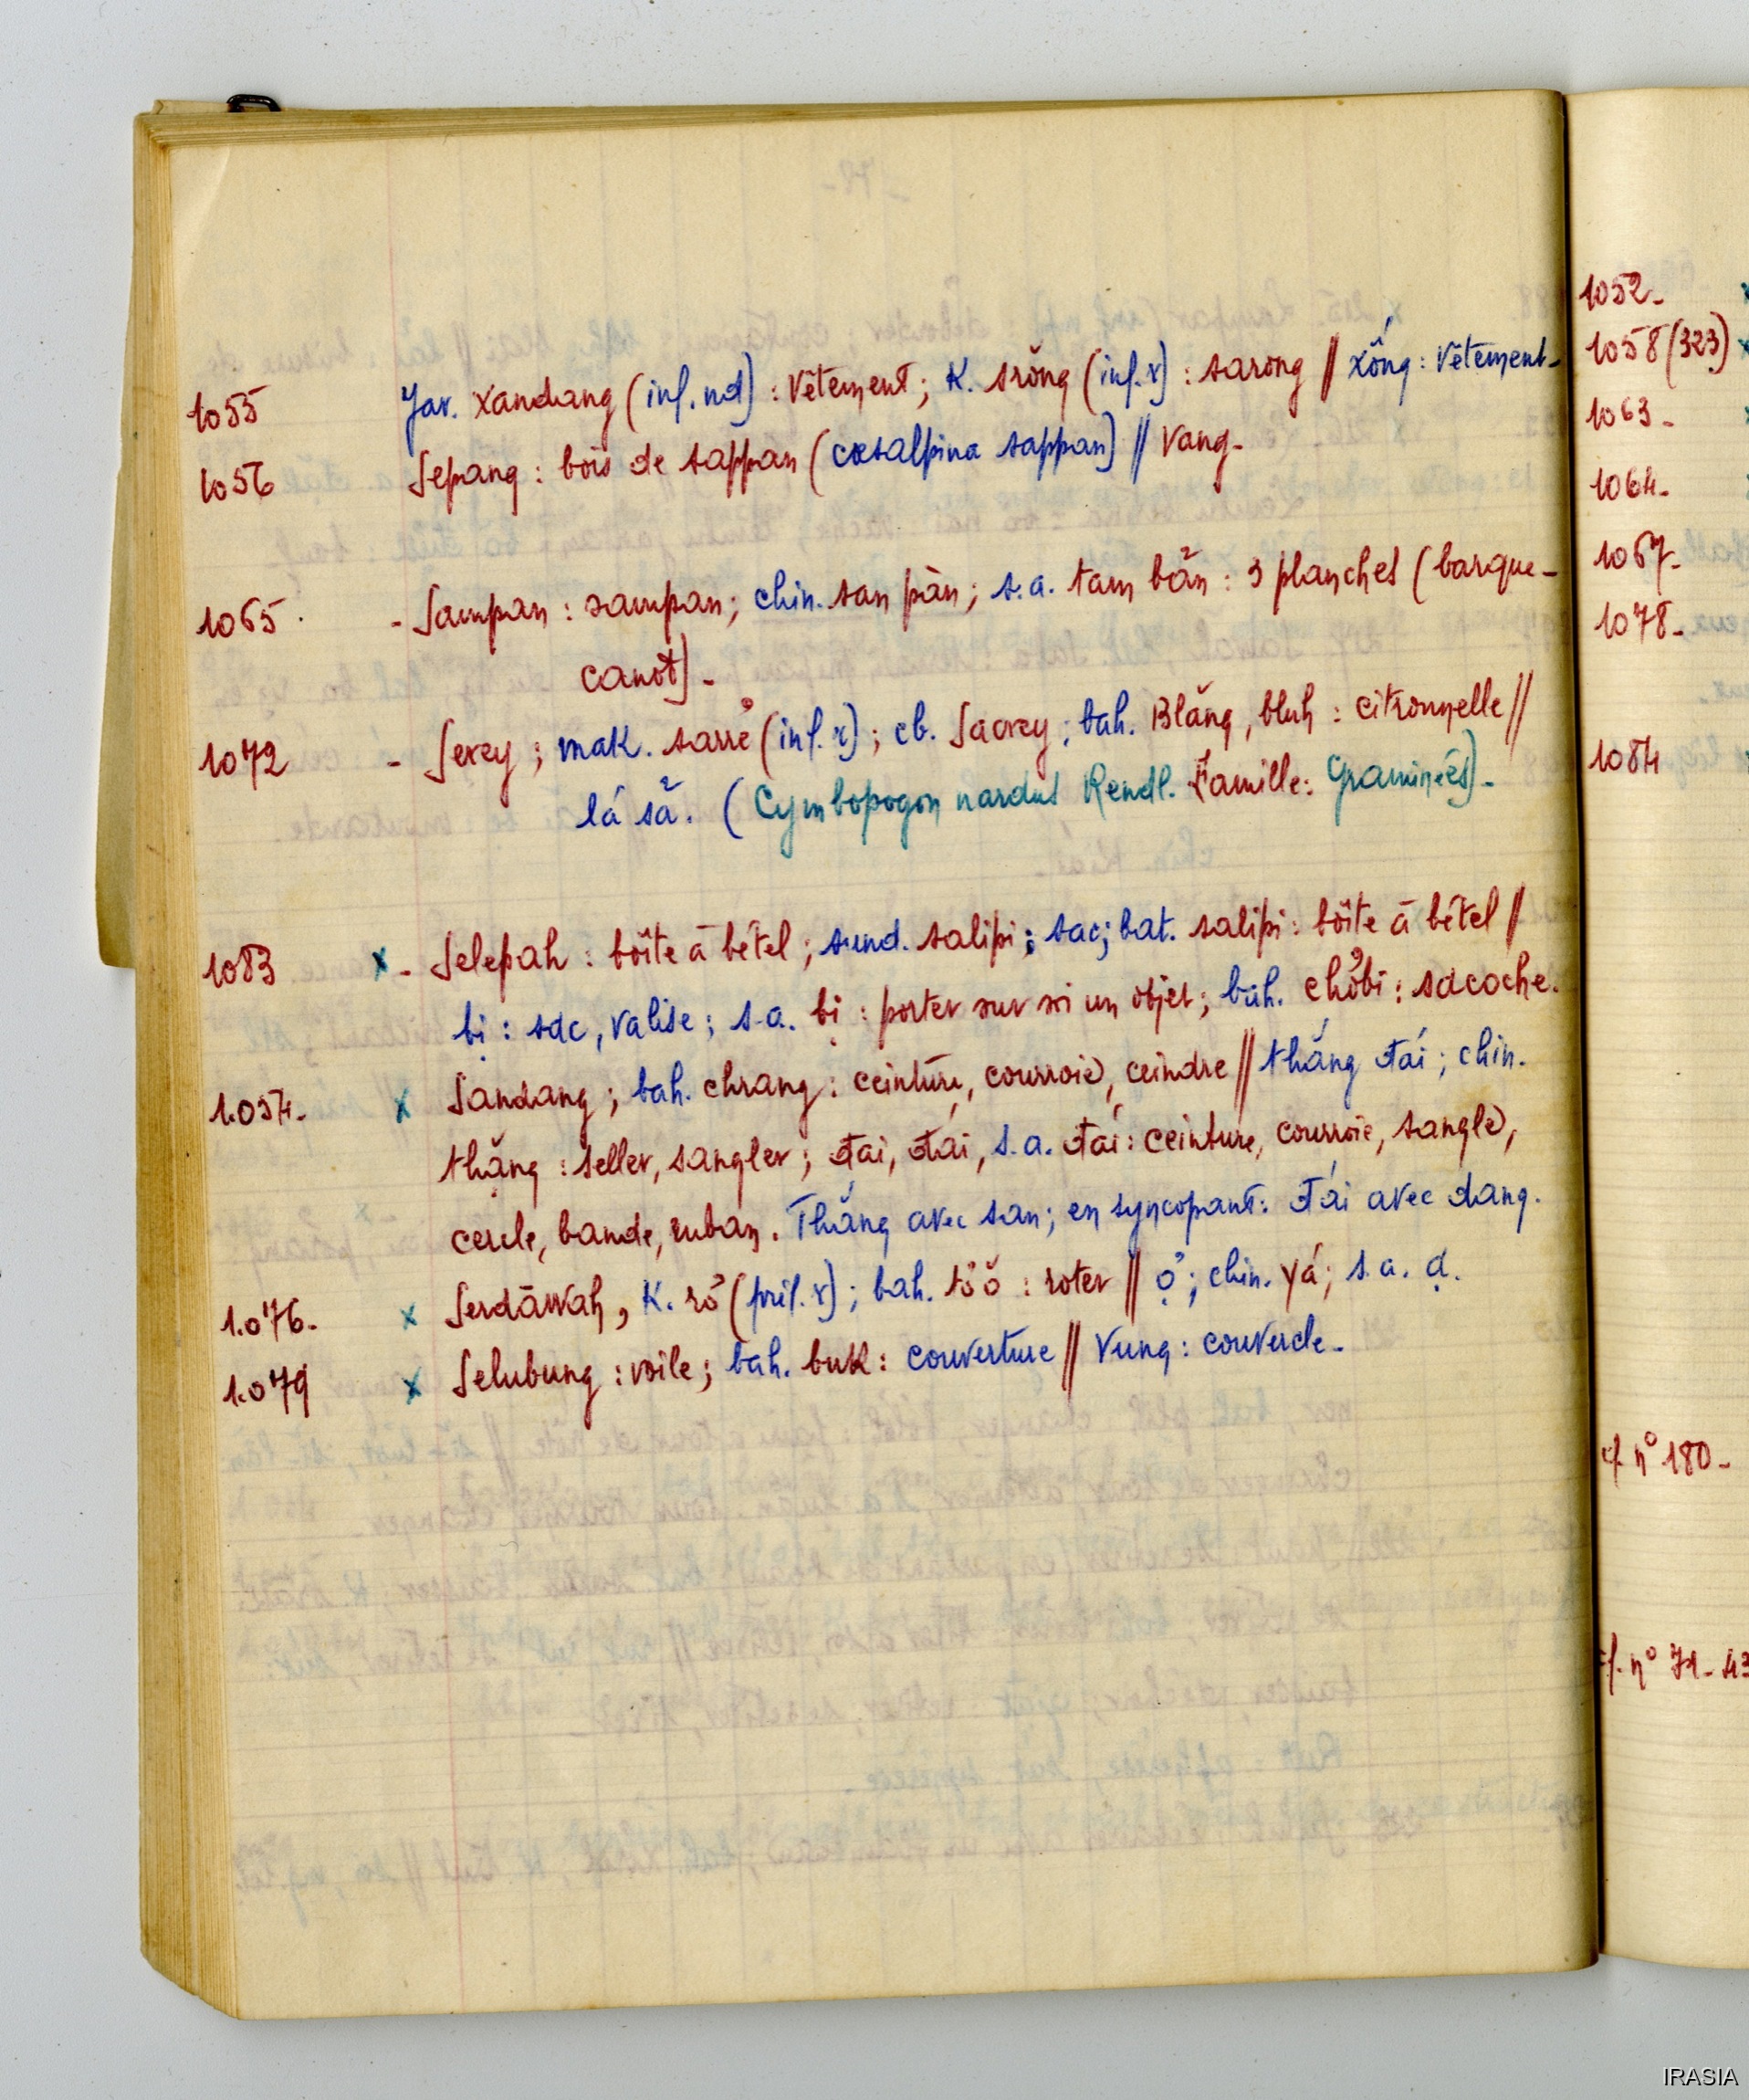 1055 Jav. xandang (inf. nd) : vêtement ; K. srŏng (inf. r) : sarong // xống : vêtement_
1056 Sepang : bois de sappan (cæsalpina sappan) // vang_
1065 - Sampan : sampan ; chin. san pàn ; s.a. tam bản : 3 planches (barque_
canot) _
1072 - Serey ; mak. sarre (inf. r) ; cb. Sacrey ; bah. Blăng, bluh : citronnelle //
lá sả. (Cymbopogon nardus Rendl. Famille : Graminées)_
1083 x - Selepah : boîte à bétel ; sund. salipi ; sac ; bat. salipi : boîte à bétel //
bị : sac, valise ; s.a. bị : porter sur soi un objet ; bah. chơbi : sacoche.
1.057. x Sandang ; bah. chrang : ceinture, courroie, ceindre // thắng đái ; chin.
thặng : seller, sangler ; đai, đái, s.a. đái : ceinture, courroie, sangle,
cercle, bande, ruban. Thắng avec san ; en syncopant : đái avec dang.
1.076. x Serdāwah, K. (pril. r) ; bah. : roter // ợ ; chin. yá ; s.a. ạ.
1.079 x Selubung : voile ; bah. buk : couverture // Vung : couvercle_
1052_
1058 (323)
1063_
1064_
1067_
1078_
1084
cf. n° 180_
cf. n° 71_
IRASIA